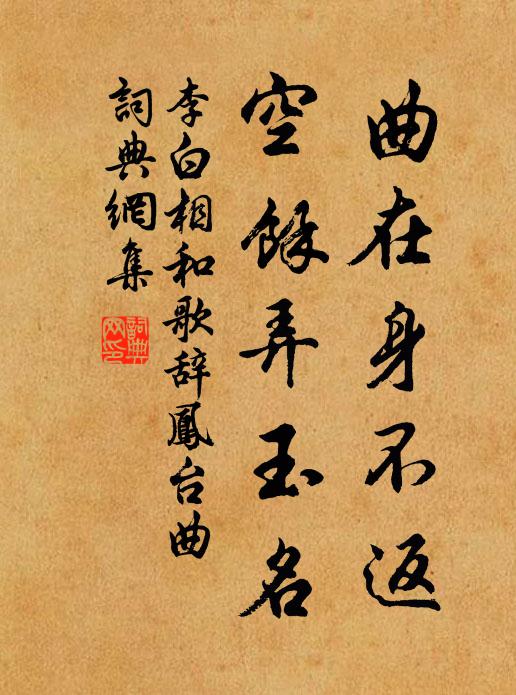 曲在身不返
空餘弄玉名
李白相和歌辞鳳台曲
詞典網集
詞典網印